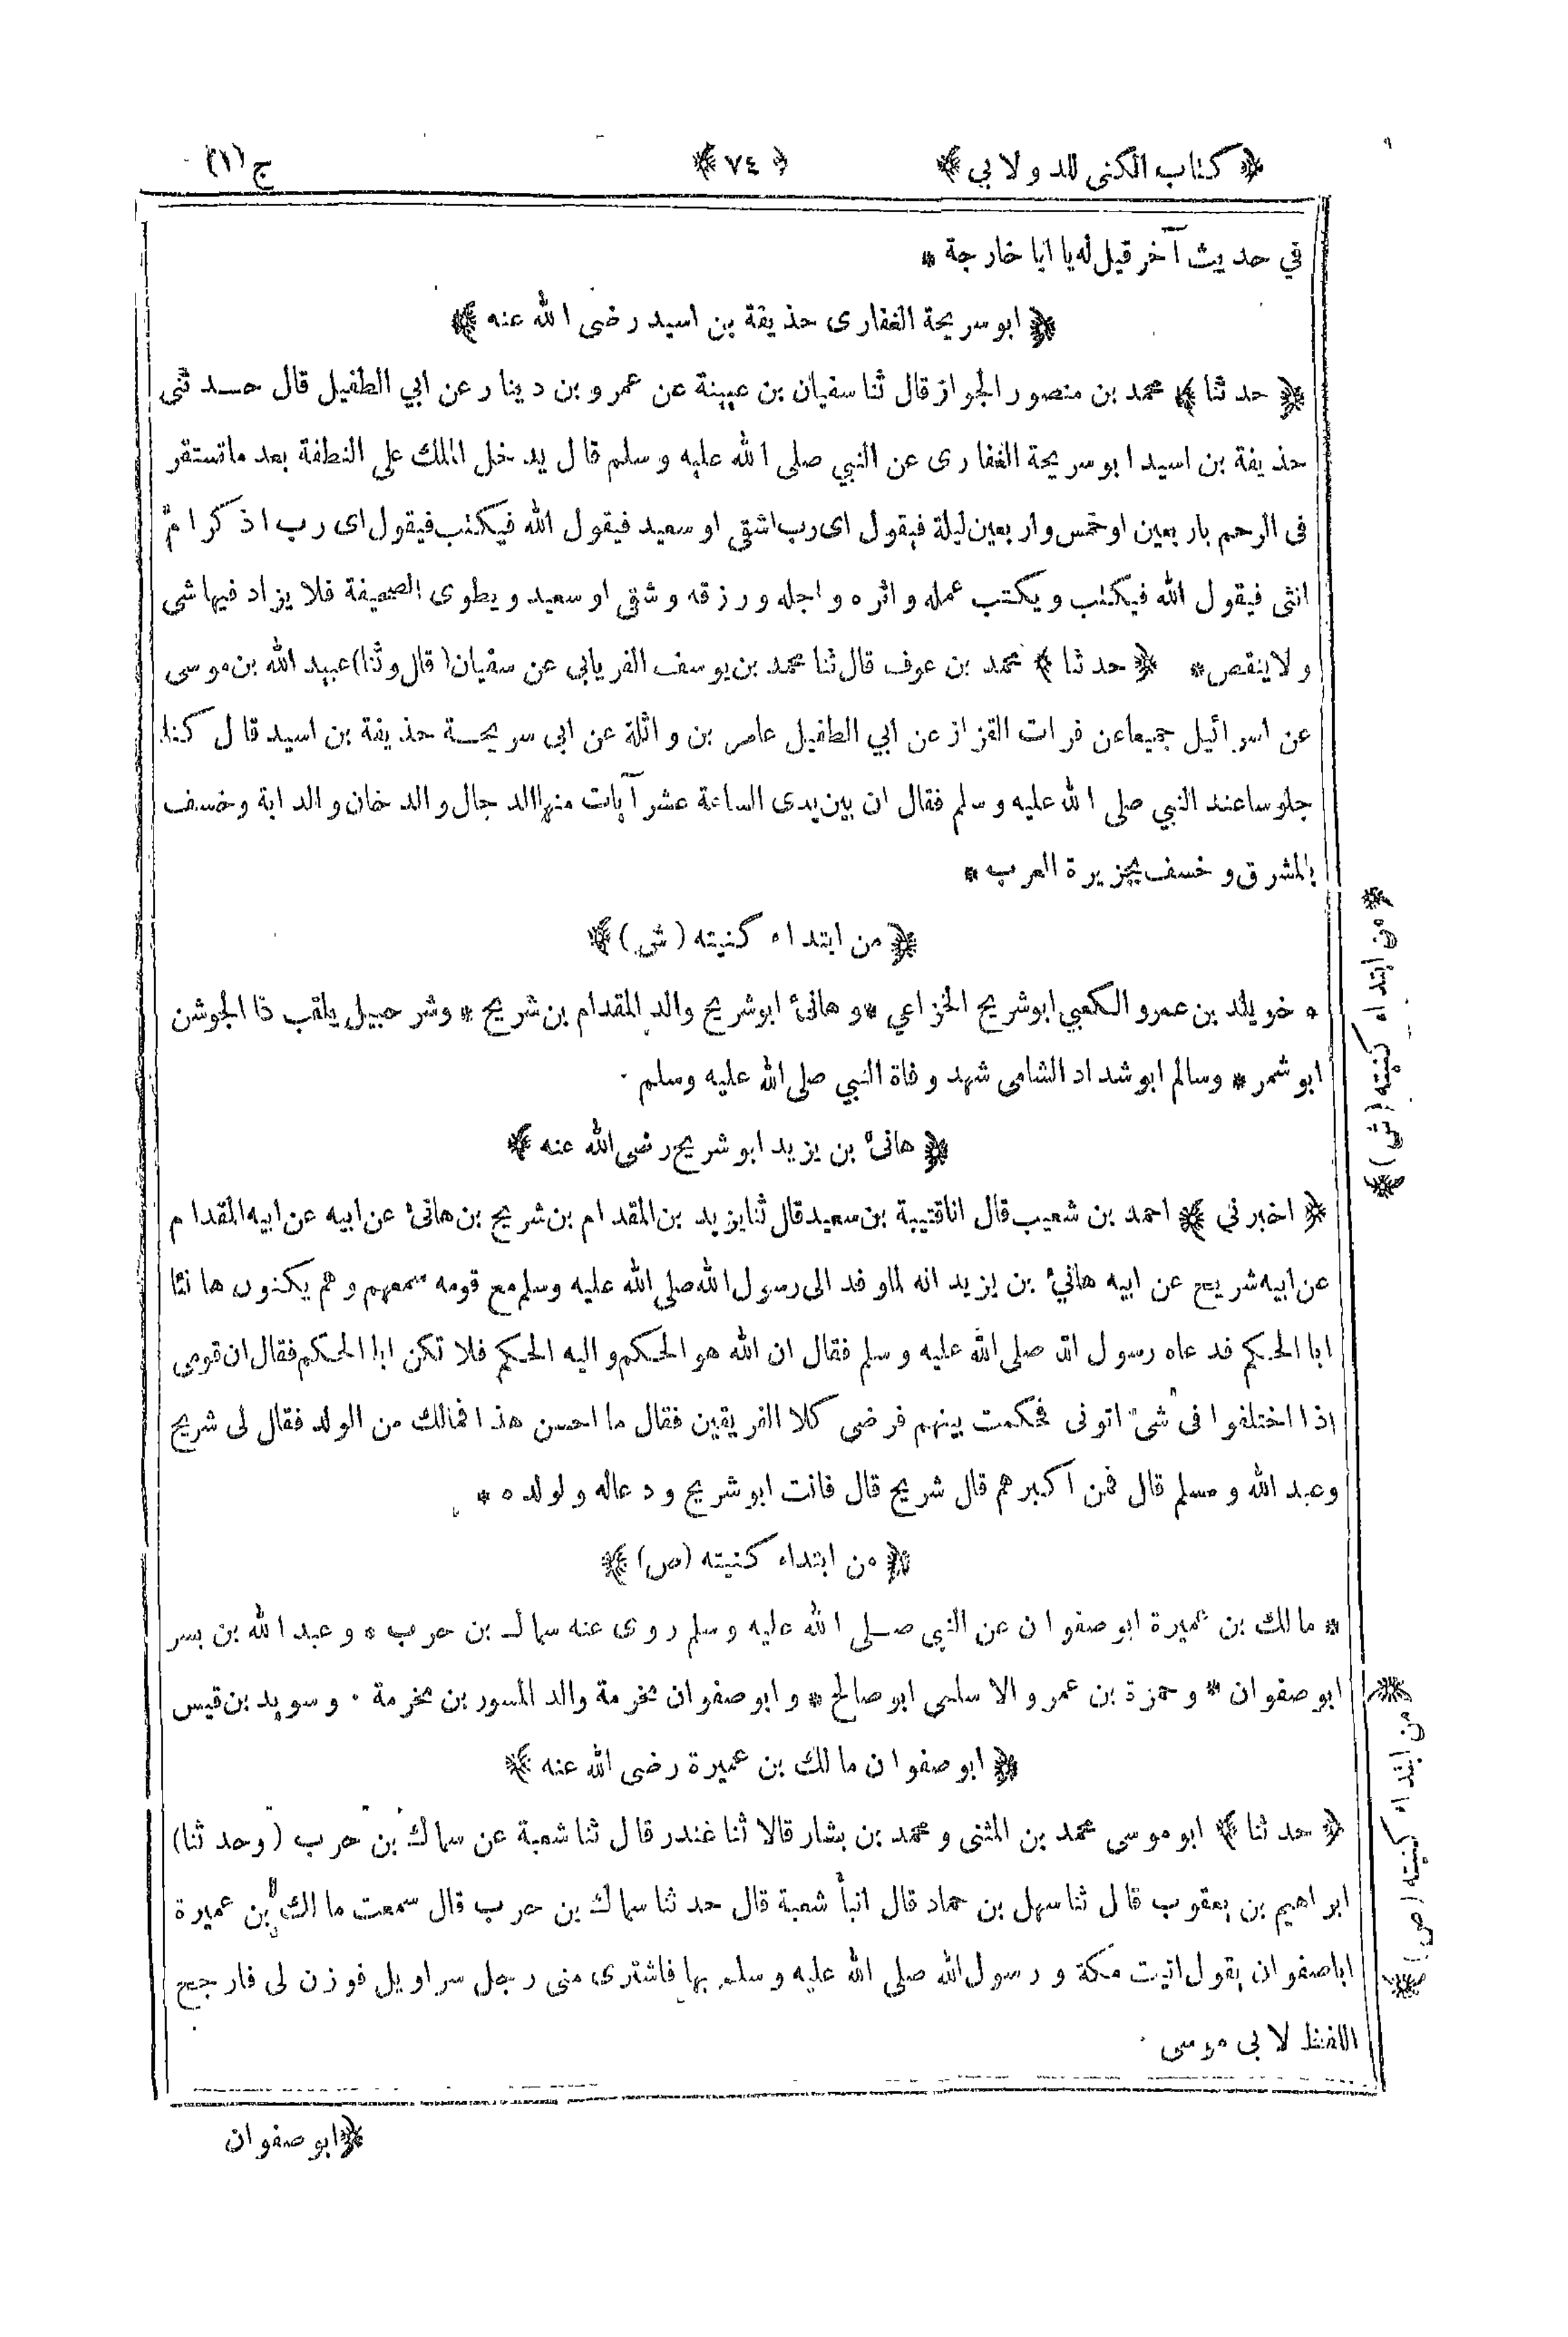 ﴿ كتاب الكنى للدولابي ﴾ ﴿ ٧٤ ﴾ ج (١)
في حديث آخر قيل له يا ابا خارجة *
﴿ ابو سريحة الغفارى حذيفة بن اسيد رضى الله عنه ﴾
﴿ حدثنا ﴾ محمد بن منصور الجواز قال ثنا سفيان بن عيينة عن عمرو بن دينار عن ابي الطفيل قال حدثنى
حذيفة بن اسيد ابو سريحة الغفارى عن النبي صلى الله عليه وسلم قال يدخل الملك على النطفة بعد ما تستقر
فى الرحم باربعين او خمس واربعين ليلة فيقول اى رب اشقى او سعيد فيقول الله فيكتب فيقول اى رب اذكر ام
انثى فيقول الله فيكتب ويكتب عمله واثره واجله ورزقه وشقى او سعيد ويطوى الصحيفة فلا يزاد فيها شى
ولا ينقص * ﴿ حدثنا ﴾ محمد بن عوف قال ثنا محمد بن يوسف الفريابي عن سفيان (قال وثنا) عبيد الله بن موسى
عن اسرائيل جميعا عن فرات القزاز عن ابي الطفيل عامر بن واثلة عن ابى سريحة حذيفة بن اسيد قال كنا
جلوسا عند النبي صلى الله عليه وسلم فقال ان بين يدى الساعة عشر آيات منها الدجال والدخان والدابة وخسف
بالمشرق وخسف بجزيرة العرب *
﴿ من ابتداء كنيته (ش) ﴾
* خويلد بن عمرو الكعبي ابو شريح الخزاعي * وهانئ ابو شريح والد المقدام بن شريح * وشرحبيل يلقب ذا الجوشن
ابو شمر * وسالم ابو شداد الشامى شهد وفاة النبي صلى الله عليه وسلم ·
﴿ هانئ بن يزيد ابو شريح رضى الله عنه ﴾
﴿ اخبرني ﴾ احمد بن شعيب قال انا قتيبة بن سعيد قال ثنا يزيد بن المقدام بن شريح بن هانئ عن ابيه عن ابيه المقدام
عن ابيه شريح عن ابيه هانئ بن يزيد انه لما وفد الى رسول الله صلى الله عليه وسلم مع قومه سمعهم وهم يكنون هانئا
ابا الحكم فدعاه رسول الله صلى الله عليه وسلم فقال ان الله هو الحكم واليه الحكم فلا تكن ابا الحكم فقال ان قومى
اذا اختلفوا فى شئ اتونى فحكمت بينهم فرضى كلا الفريقين فقال ما احسن هذا فمالك من الولد فقال لى شريح
وعبد الله ومسلم قال فمن اكبرهم قال شريح قال فانت ابو شريح ودعاله ولولده *
﴿ من ابتداء كنيته (ص) ﴾
* مالك بن عميرة ابو صفوان عن النبي صلى الله عليه وسلم روى عنه سماك بن حرب * وعبد الله بن بسر
ابو صفوان * وحمزة بن عمرو الاسلمى ابو صالح * وابو صفوان مخرمة والد المسور بن مخرمة · وسويد بن قيس
﴿ ابو صفوان مالك بن عميرة رضى الله عنه ﴾
﴿ حدثنا ﴾ ابو موسى محمد بن المثنى ومحمد بن بشار قالا ثنا غندر قال ثنا شعبة عن سماك بن حرب (وحدثنا)
ابراهيم بن يعقوب قال ثنا سهل بن حماد قال انبأ شعبة قال حدثنا سماك بن حرب قال سمعت مالك بن عميرة
اباصفوان يقول اتيت مكة ورسول الله صلى الله عليه وسلم بها فاشترى منى رجل سراويل فوزن لى فارجح
اللفظ لابى موسى ·
﴿ ابو صفوان
﴿ من ابتداء كنيته (ش) ﴾
﴿ من ابتداء كنيته (ص) ﴾